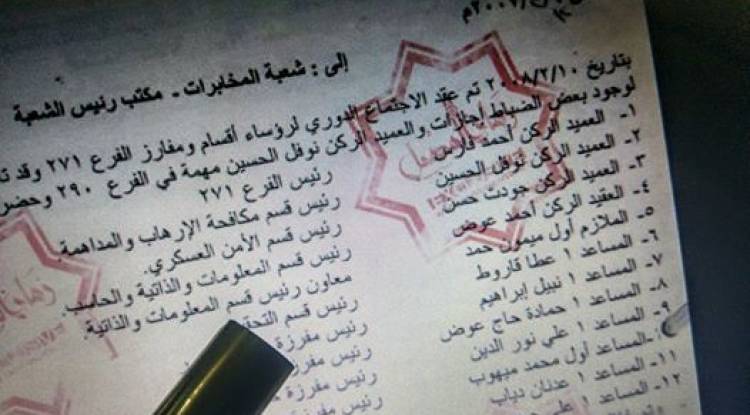 ٢٠٠٧م
إلى : شعبة المخابرات - مكتب رئيس الشعبة
بتاريخ ٢٠٠٨/٢/١٠ تم عقد الاجتماع الدوري لرؤساء أقسام ومفارز الفرع ٢٧١ وقد
لوجود بعض الضباط إجازات والعميد الركن نوفل الحسين مهمة في الفرع ٢٩٠ وحضر
١- العميد الركن أحمد فارس رئيس الفرع ٢٧١
٢- العميد الركن نوفل الحسين رئيس قسم مكافحة الإرهاب والمداهمة.
٣- العميد الركن جودت حسن رئيس قسم الأمن العسكري.
٤- العقيد الركن أحمد عوض رئيس قسم المعلومات والذاتية والحاسب.
٥- الملازم أول ميمون حمد معاون رئيس قسم المعلومات والذاتية.
٦- المساعد ١ عطا قاروط رئيس قسم
٧- المساعد ١ نبيل إبراهيم رئيس مفرزة
٨- المساعد ١ حمادة حاج عوض رئيس مفرزة
٩- المساعد ١ علي نور الدين رئيس مفرزة
المساعد أول محمد ميهوب رئيس مفرزة
١١- المساعد ١ عدنان دياب
١٢- المساعد ١ علي